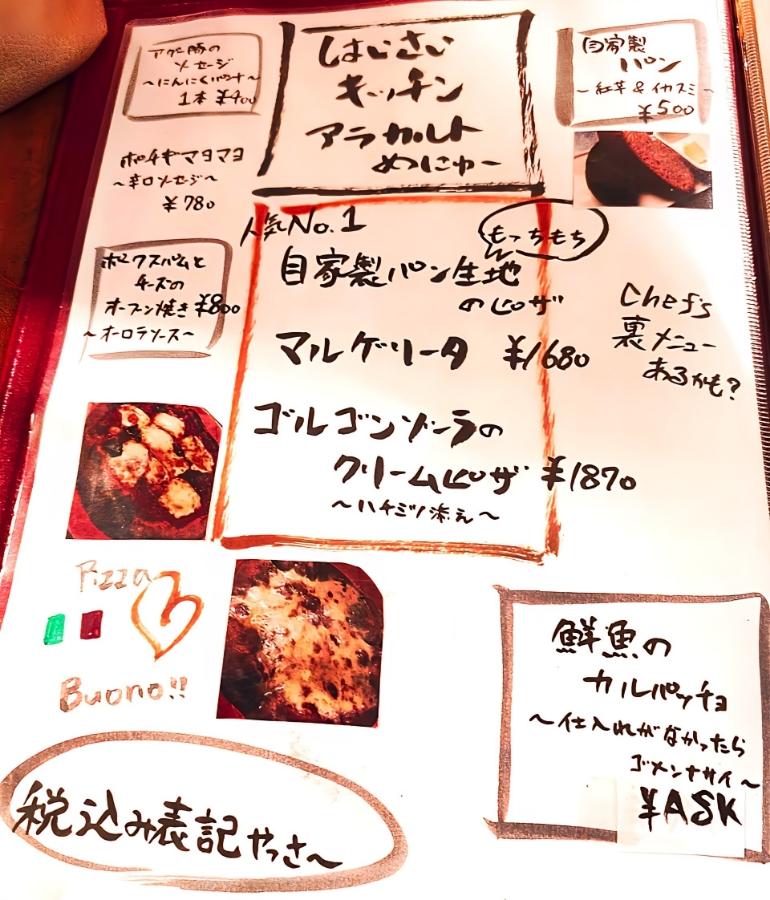 はいさい
キッチン
アラカルト
めにゅー
アグー豚の
ソーセージ
～にんにくパウダー～
1本 ¥400
自家製
パン
～紅芋&イカスミ～
¥500
ポチギマヨマヨ
～辛口ソーセージ～
¥780
人気No.1
もっちもち
自家製パン生地
のピザ
マルゲリータ ¥1680
ゴルゴンゾーラの
クリームピザ ¥1870
～ハチミツ添え～
ポークスパムと
チーズの
オーブン焼き ¥800
～オーロラソース～
Chef's
裏メニュー
あるかも?
Pizza
Buono!!
鮮魚の
カルパッチョ
～仕入れがなかったら
ゴメンナサイ～
¥ASK
税込み表記やっさ～